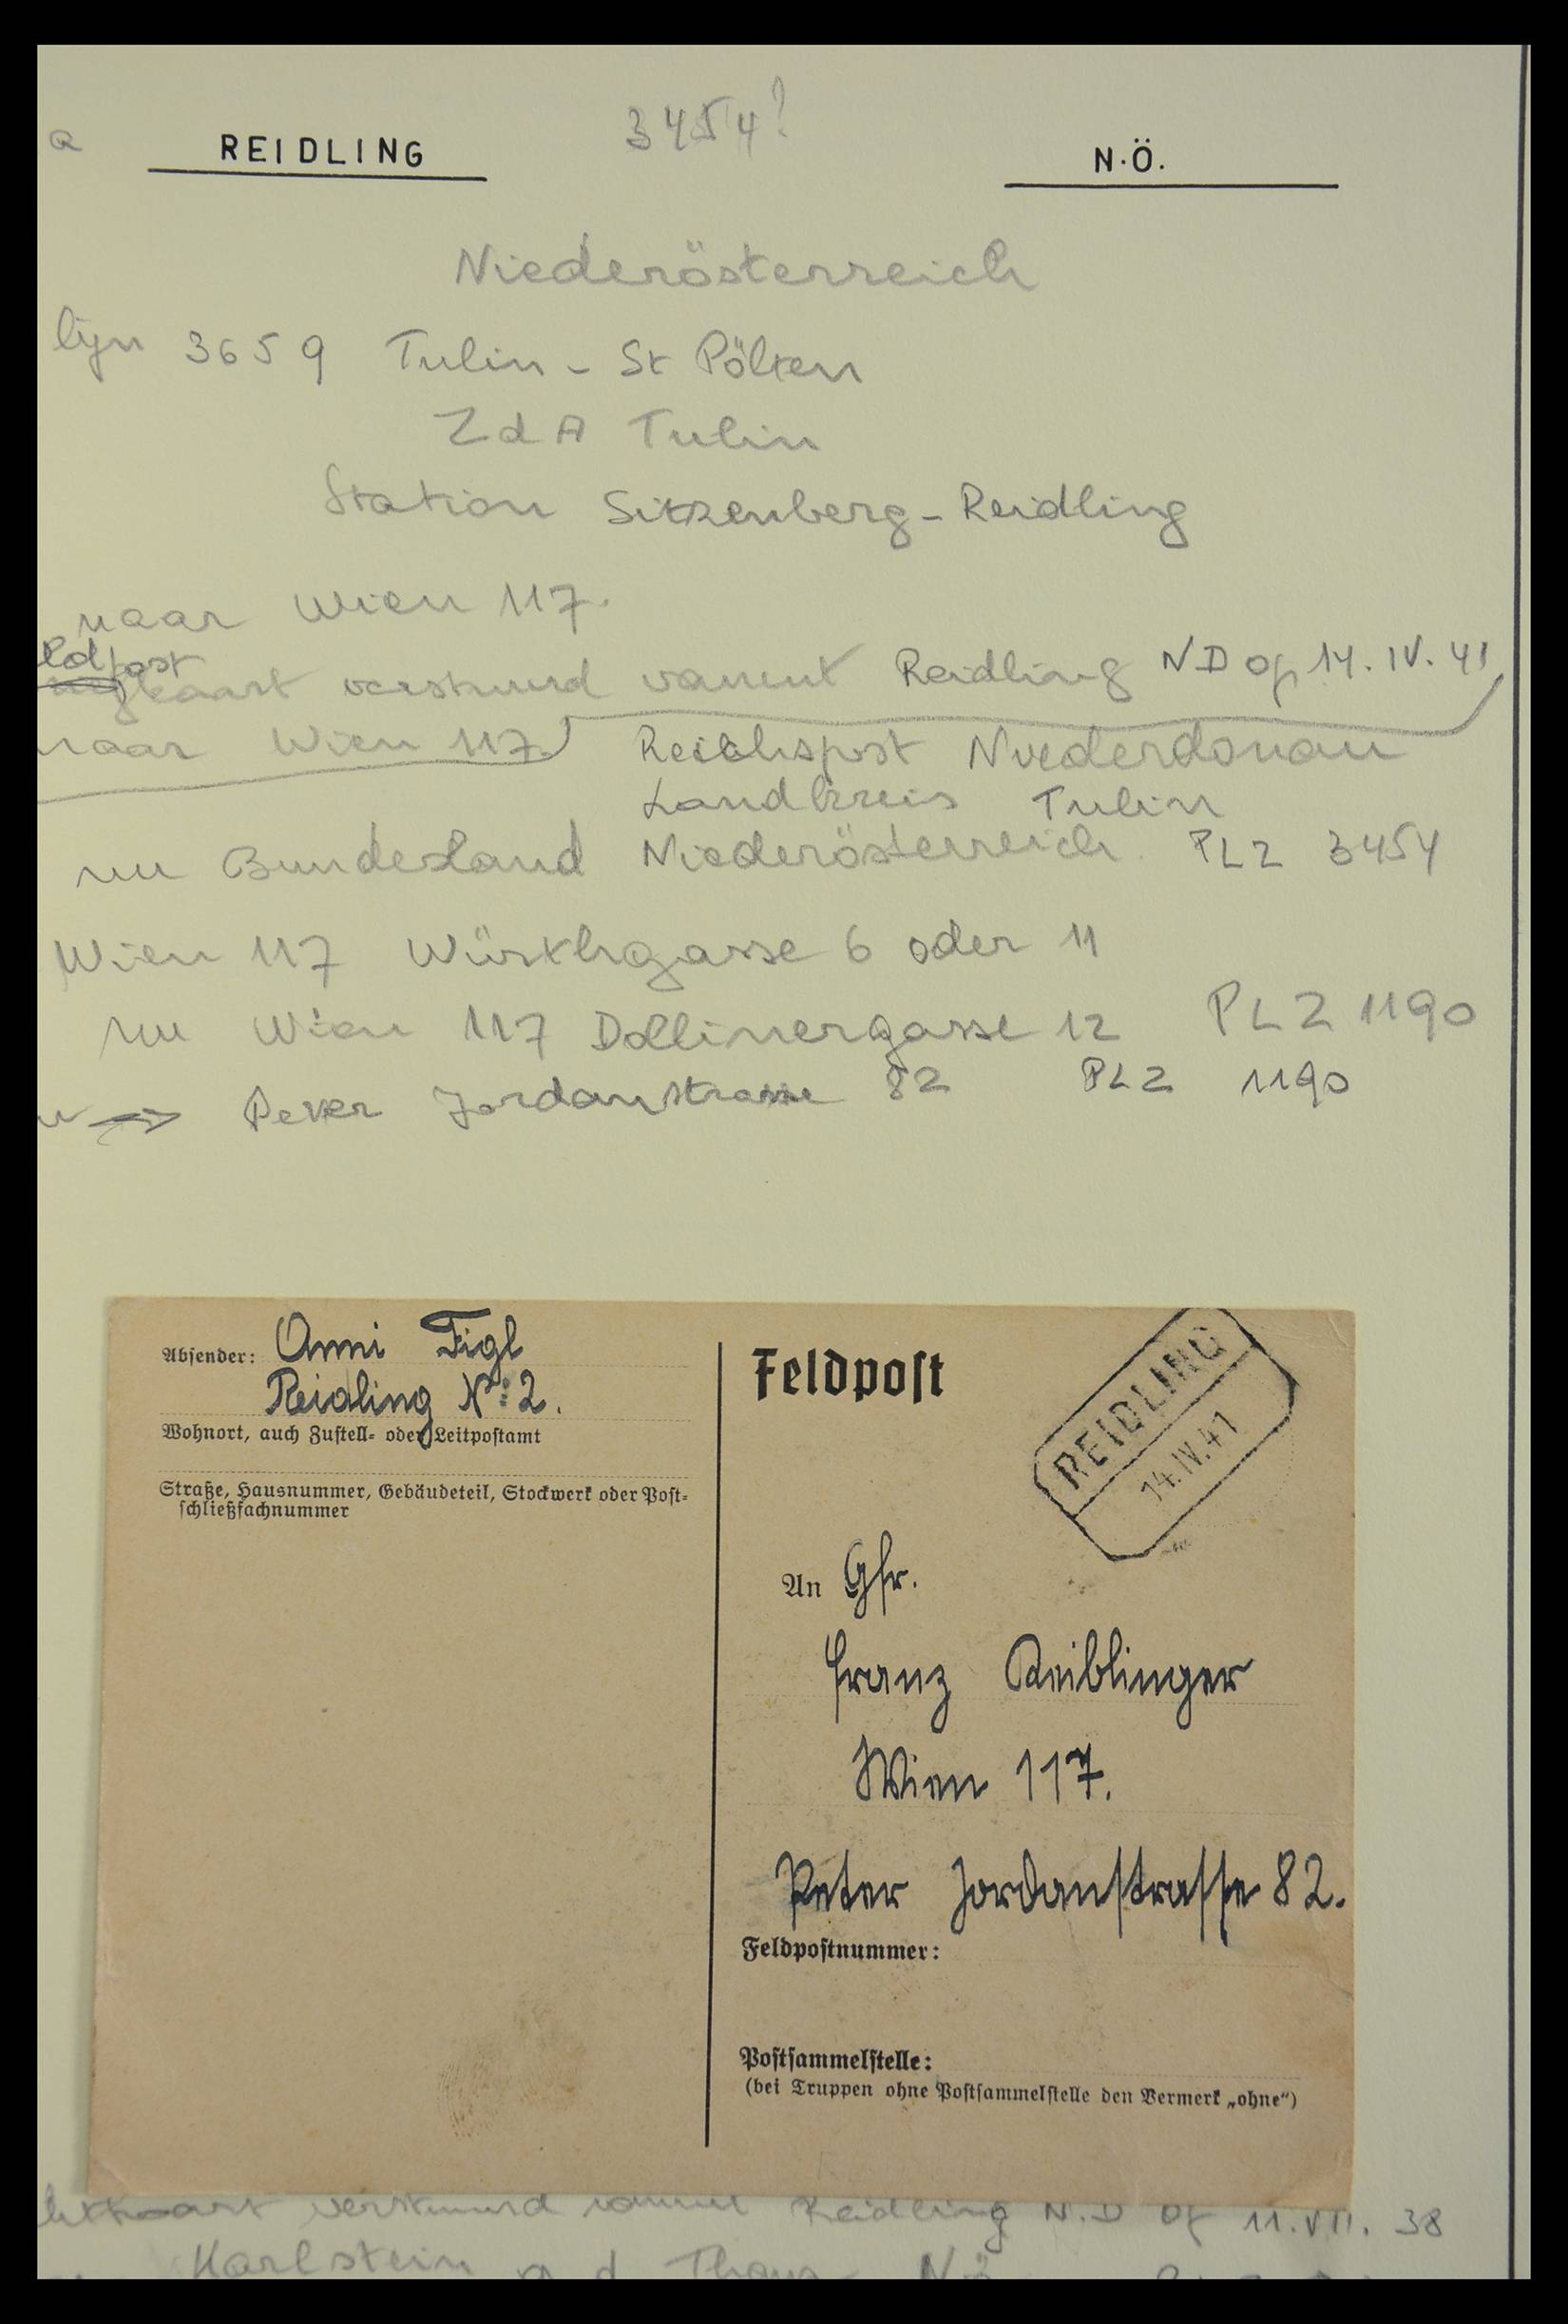 a REIDLING 3454? N.Ö.
Niederösterreich
lijn 3659 Tulln - St Pölten
ZdA Tulln
Station Sitzenberg - Reidling
naar Wien 117.
ldpost
kaart verstuurd vanuit Reidling ND op 14.IV.41
naar Wien 117 Reichspost Niederdonau
Landkreis Tulln
nu Bundesland Niederösterreich PLZ 3454
Wien 117 Würthgasse 6 oder 11
nu Wien 117 Dollinergasse 12 PLZ 1190
→ Peter Jordanstrasse 82 PLZ 1190
Absender: Anni Figl
Reidling No: 2.
Wohnort, auch Zustell- oder Leitpostamt
Straße, Hausnummer, Gebäudeteil, Stockwerk oder Post-
schließfachnummer
Feldpost
REIDLING
14.IV.41
An Gfr.
Franz Keiblinger
Wien 117.
Peter Jordanstrasse 82.
Feldpostnummer:
Postsammelstelle:
(bei Truppen ohne Postsammelstelle den Vermerk „ohne“)
verstuurd vanuit Reidling N.D op 11.VII.38
Karlstein a d Thaya NÖ